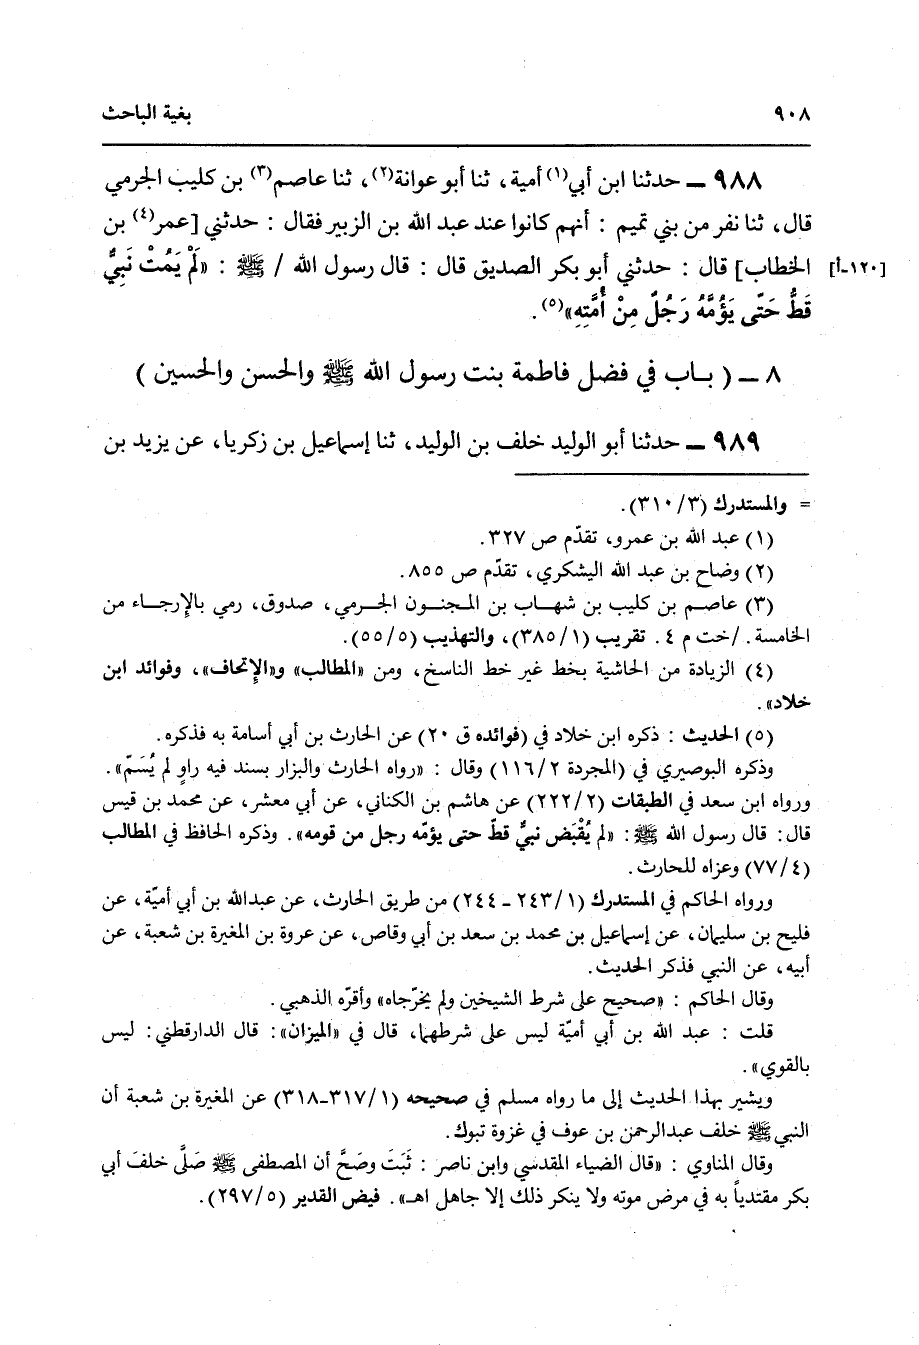 ٩٠٨ بغية الباحث
٩٨٨ ــ حدثنا ابن أبي(١) أمية، ثنا أبو عوانة(٢)، ثنا عاصم(٣) بن كليب الجرمي
قال، ثنا نفر من بني تميم : أنهم كانوا عند عبد الله بن الزبير فقال : حدثني [عمر(٤) بن
[١٢٠-أ] الخطاب] قال : حدثني أبو بكر الصديق قال : قال رسول الله / ﷺ : «لَمْ يَمُتْ نَبِيٌّ
قَطُّ حَتّى يَؤُمَّهُ رَجُلٌ مِنْ أُمَّتِهِ»(٥).
٨ ــ ( بـاب في فضل فاطمة بنت رسول الله ﷺ والحسن والحسين )
٩٨٩ ــ حدثنا أبو الوليد خلف بن الوليد، ثنا إسماعيل بن زكريا، عن يزيد بن
= والمستدرك (٣١٠/٣).
(١) عبد الله بن عمرو، تقدّم ص ٣٢٧.
(٢) وضاح بن عبد الله اليشكري، تقدّم ص ٨٥٥.
(٣) عاصم بن كليب بن شهاب بن المجنون الجرمي، صدوق، رمي بالإرجاء من
الخامسة. /خت م ٤. تقريب (٣٨٥/١)، والتهذيب (٥٥/٥).
(٤) الزيادة من الحاشية بخط غير خط الناسخ، ومن «المطالب» و«الإتحاف»، وفوائد ابن
خلاد».
(٥) الحديث : ذكره ابن خلاد في (فوائده ق ٢٠) عن الحارث بن أبي أسامة به فذكره.
وذكره البوصيري في (المجردة ١١٦/٢) وقال : «رواه الحارث والبزار بسند فيه راوٍ لم يُسَمّ».
ورواه ابن سعد في الطبقات (٢٢٢/٢) عن هاشم بن الكناني، عن أبي معشر، عن محمد بن قيس
قال: قال رسول الله ﷺ: «لم يُقْبَض نبيٌّ قطّ حتى يؤمّه رجل من قومه». وذكره الحافظ في المطالب
(٧٧/٤) وعزاه للحارث.
ورواه الحاكم في المستدرك (٢٤٣/١ ـ ٢٤٤) من طريق الحارث، عن عبدالله بن أبي أميّة، عن
فليح بن سليمان، عن إسماعيل بن محمد بن سعد بن أبي وقاص، عن عروة بن المغيرة بن شعبة، عن
أبيه، عن النبي فذكر الحديث.
وقال الحاكم : «صحيح على شرط الشيخين ولم يخرّجاه» وأقرّه الذهبي.
قلت : عبد الله بن أبي أميّة ليس على شرطهما، قال في «الميزان»: قال الدارقطني: ليس
بالقوي».
ويشير بهذا الحديث إلى ما رواه مسلم في صحيحه (٣١٧/١-٣١٨) عن المغيرة بن شعبة أن
النبي ﷺ خلف عبدالرحمن بن عوف في غزوة تبوك.
وقال المناوي : «قال الضياء المقدسي وابن ناصر : ثَبَتَ وصَحَّ أن المصطفى ﷺ صَلَّى خلفَ أبي
بكر مقتدياً به في مرض موته ولا ينكر ذلك إلا جاهل اهـ». فيض القدير (٢٩٧/٥).